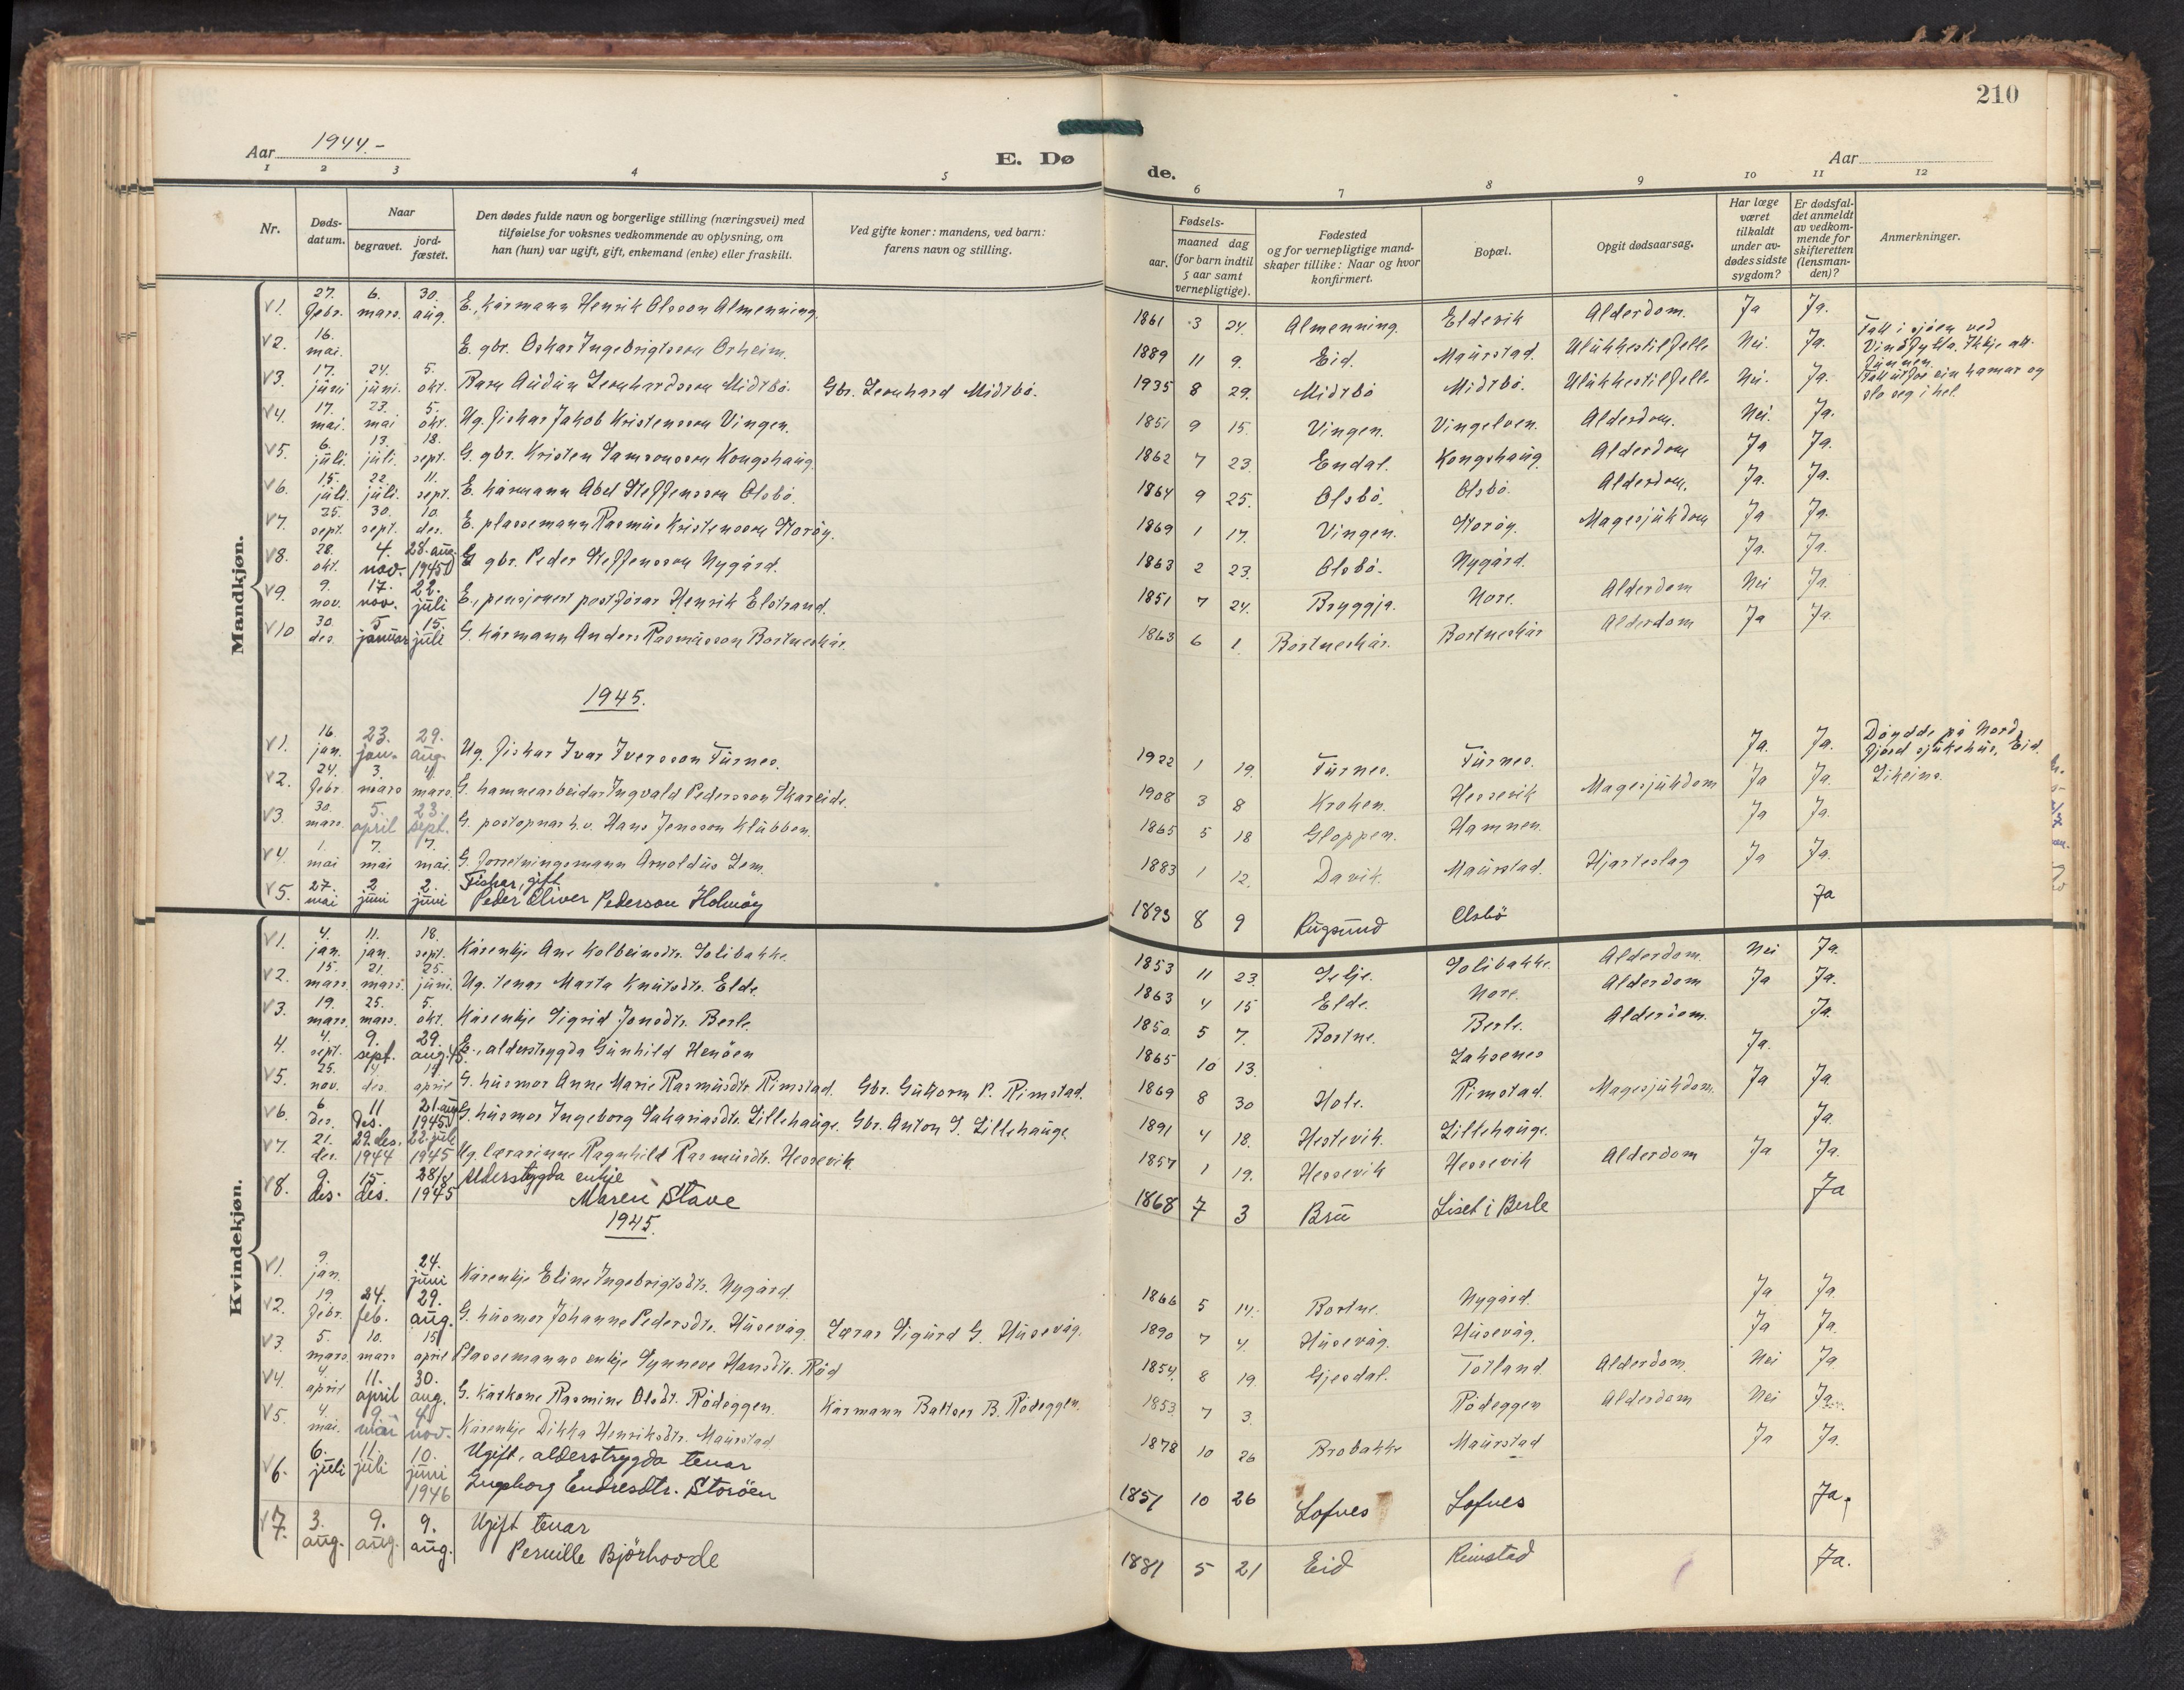 210
Aar 1944.-
E. Dø
de.
Aar
1 2 3 4 5 6 7 8 9 10 11 12
Nr.
Døds-
datum.
Naar
begravet.
jord-
fæstet.
Den dødes fulde navn og borgerlige stilling (næringsvei) med
tilføielse for voksnes vedkommende av oplysning, om
han (hun) var ugift, gift, enkemand (enke) eller fraskilt.
Ved gifte koner: mandens, ved barn:
farens navn og stilling.
Fødsels-
aar.
maaned dag
(for barn indtil
5 aar samt
vernepligtige).
Fødested
og for vernepligtige mand-
skaper tillike: Naar og hvor
konfirmert.
Bopæl.
Opgit dødsaarsag.
Har læge
været
tilkaldt
under av-
dødes sidste
sygdom?
Er dødsfal-
det anmeldt
av vedkom-
mende for
skifteretten
(lensman-
den)?
Anmerkninger.
Mandkjøn.
V1. 27. febr. 6. mars. 30. aug. E., kårmann Henrik Olsson Almenning. 1861 3 24. Almenning. Eldevik Alderdom. Ja Ja.
V2. 16. mai. E. gbr. Oskar Ingebrigtsson Orheim. 1889 11 9. Eid. Maurstad. Ulukkestilfelle Nei. Ja. Fall i sjøen ved Vindfylta. Ikkje att- funnen.
V3. 17. juni 24. juni. 5. okt. Barn Audun Leonhardsson Midtbö. Gbr. Leonhard Midtbö. 1935 8 29. Midtbö Midtbö. Ulukkestilfelle Nei. Ja. Fall utfor ein hamar og slo seg i hel.
V4. 17. mai. 23. mai 5. okt. Ug. fiskar Jakob Kristensson Vingen. 1851 9 15. Vingen. Vingelven. Alderdom. Nei. Ja.
V5. 6. juli. 13. juli. 18. sept. G. gbr. Kristen Samsonsson Kongshaug. 1862 7 23. Endal. Kongshaug Alderdom Ja Ja.
V6. 15. juli. 22. juli. 11. sept. E. kårmann Abel Steffensson Olsbö. 1864 9 25. Olsbö. Olsbö. Alderdom. Ja. Ja.
V7. 25. sept. 30. sept. 10. des. E. plassemann Rasmus Kristensson Storöy. 1869 1 17. Vingen. Storöy. Magesjukdom Ja Ja.
V8. 28. okt. 4. nov. 28. aug. 1945 G gbr. Peder Steffensson Nygård. 1863 2 23. Olsbö. Nygård. Ja. Ja.
V9. 9. nov. 17. nov. 22. juli E., pensjonert postförar Henrik Elstrand. 1851 7 24. Bryggja. Nore. Alderdom Nei Ja.
V10 30. des. 5. januar 15. juli G. kårmann Anders Rasmusson Bortneskår. 1863 6 1. Bortneskår. Bortneskår Alderdom Ja Ja.
1945.
V1. 16. jan. 23. jan. 29. aug. Ug. fiskar Ivar Iversson Furnes. 1922 1 19. Furnes. Furnes. Ja. Ja. Döydde på Nord- fjord sjukehus, Eid.
V2. 24. febr. 3. mars mars. G. hamnearbeidar Ingvald Pedersson Skareide. 1908 3 8 Kroken. Hessevik Magesjukdom Ja Ja.
V3. 30. mars. 5. april 23. sept. G. postopnar h.v. Hans Jensson Klubben. 1865 5 18 Gloppen. Hamnen. Ja Ja.
V4. 1. mai 7. mai 7. mai. G. forretningsmann Arnoldus Lem. 1883 1 12. Davik. Maurstad. Hjarteslag Ja Ja.
V5. 27. mai 2 juni 2. juni Fiskar, gift Peder Oliver Pederson Holmöy 1893 8 9 Rugsund Olsbö Ja
Kvindekjøn.
V1. 4. jan. 11. jan. 18. sept. Kårenkje Ane Kolbeinsdtr. Solibakke. 1853 11 23. Selje. Solibakke. Alderdom. Nei Ja.
V2. 15. mars. 21. mars. 25. juni. Ug. tenar Marta Knutsdtr. Elde. 1863 4 15 Elde. Nore. Alderdom Ja Ja.
V3. 19. mars 25. mars. 5. okt. Kårenkje Sigrid Jonsdtr. Berle. 1850. 5 7. Bortne. Berle. Alderdom. Ja.
4. 4. sept. 9. sept. 29. aug. 45. E., alderstrygda Gunhild Henöen 1865 10 13. Laksenes Ja.
V5. 25. nov. des. april G. husmor Anne Marie Rasmusdtr. Rimstad. Gbr. Guttorm P. Rimstad. 1869 8 30 Hole. Rimstad. Magesjukdom. Ja Ja
V6. 6 des. 11 des. 21. aug. 1945 G. husmor Ingeborg Sakariasdtr. Lillehauge. Gbr. Anton S. Lillehauge. 1891 4 18. Hestevik. Lillehauge. Ja.
V7. 21. des. 29. des. 1944 22. juli 1945 Ug. lærarinne Ragnhild Rasmusdtr. Hessevik 1857 1 19. Hessevik Hessevik Alderdom Ja Ja.
V8. 9. des. 15. des. 28/8 1945 Alderstrygda enkje Maren Stave 1868 7 3 Bru Liset i Berle Ja
1945.
V1. 9. jan. 24. juni Kårenkje Eline Ingebrigtsdtr. Nygård 1866 5 14. Bortne. Nygård. Ja Ja
V2. 19. febr. 24. feb. 29. aug. G. husmor Johanne Pedersdtr. Husevåg. Lærar Sigurd G. Husevåg. 1890 7 4. Husevåg. Husevåg. Ja Ja.
V3 5. mars 10. mars 15. april Plassemanns enkje Synneve Hansdtr. Röd 1854. 8 19. Gjesdal. Totland. Alderdom. Nei Ja
V4. 4. april 11. april 30. aug. G. kårkone Rasmine Olsdtr. Rödeggen. Kårmann Baltser B. Rödeggen. 1853. 7 3. Rödeggen Alderdom Nei Ja.
V5. 4. mai. 9. mai 4. nov. Kårenkje Dikka Henriksdtr. Maurstad 1878 10 26 Brobakke Maurstad Ja Ja.
V6. 6. juli 11. juli 10. juni 1946 Ugift, alderstrygda tenar Ingeborg Endresdtr. Storöen 1851 10 26 Lofnes Lofnes Ja.
V7. 3. aug. 9. aug. 9. aug. Ugift tenar Pernille Björhovde 1881 5 21 Eid Rimstad Ja.